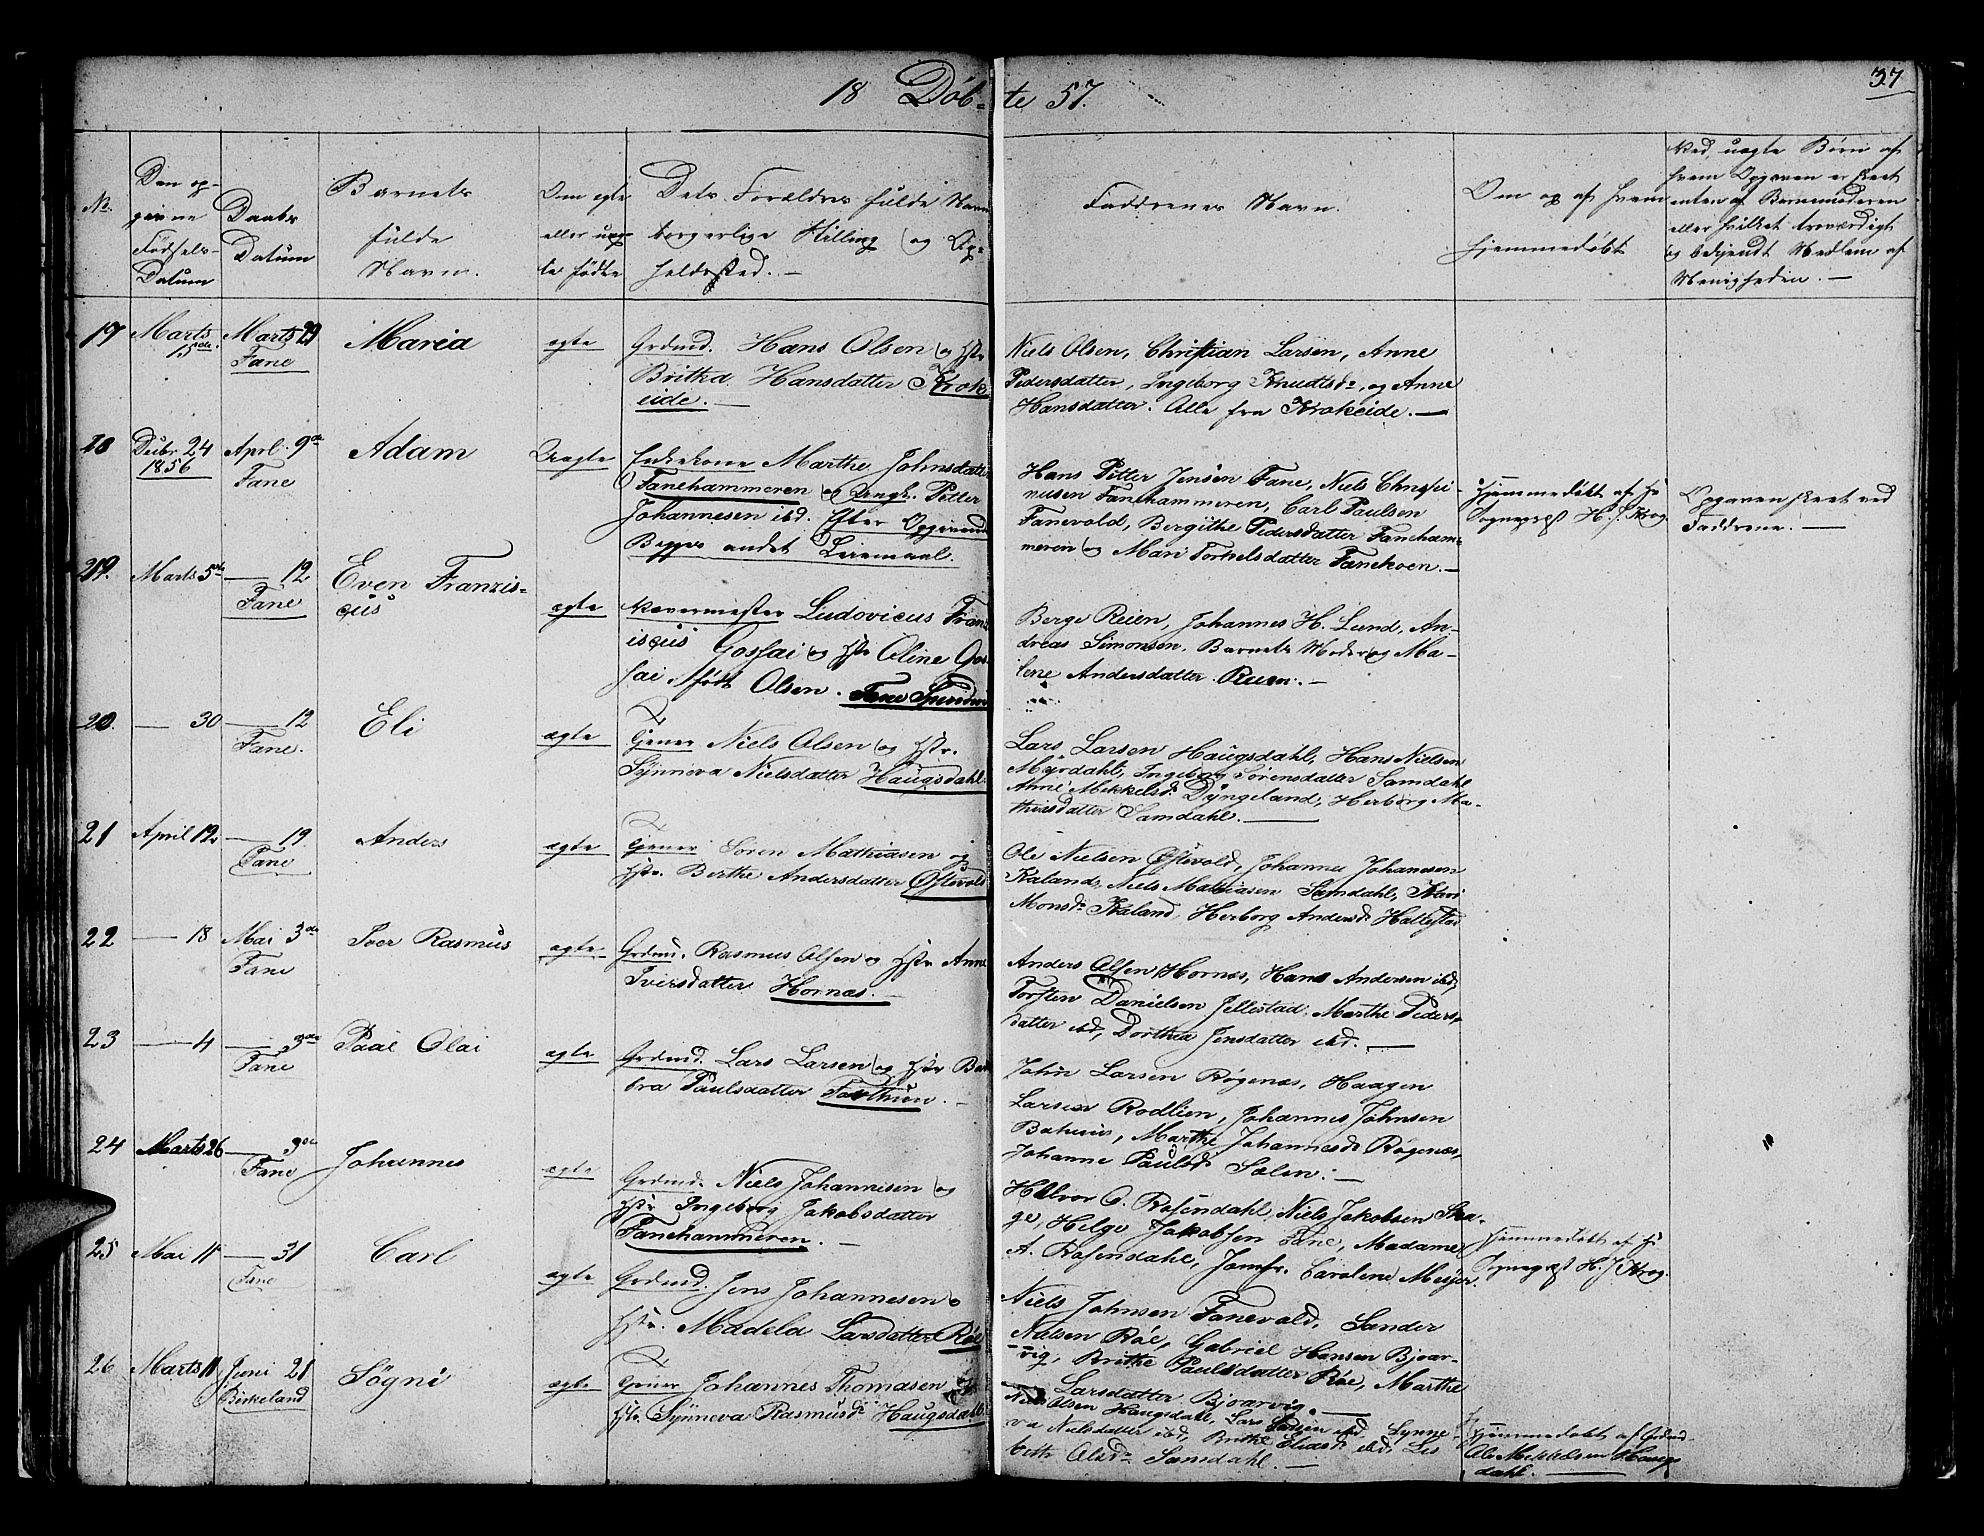 18 Døb-te 57.
37
No.
Den op-
givne
Fødsels-
Datum
Daabs
Datum
Barnets
fulde
Navn.
Om ægte
eller uæg-
te fødte
Dets Forældres fulde Navn
borgerlige Stilling og Op-
holdssted. —
Faddrenes Navn.
Om og af hvem
hjemmedøbt
Ved uægte Børn af
hvem Opgaven er skeet
enten af Barnemoderen
eller hvilket troværdigt
og bekjendt Medlem af
Menigheden. —
17 Marts 15de Marts 29 Fane Maria ægte
Grdmd. Hans Olsen og Hstr
Britha Hansdatter Krok-
eide. —
Niels Olsen, Christian Larsen, Anne
Pedersdatter, Ingeborg Knudtsdr, og Anne
Hansdatter. Alle fra Krokeide. —
18 Decbr 24 1856 Aprl 9de Fane Adam Uægte
Enkekone Marthe Johnsdatter
Fanehammeren og Ungk. Petter
Johannesen ibd. Efter Opgivende
Begges andet Leiermaal.
Hans Petter Jensen Fane, Niels Christi-
nusen Fanehammeren, Carl Paulsen
Fanevold, Bergithe Pedersdatter Faneham-
meren og Mari Torkelsdatter Fanekoen. —
Hjemmedøbt af Hr
Sognepræst H. J. Krog.
Opgaven skeet ved
Faddrene. —
19. Marts 5te — 12 Fane Even Franzis-
cus ægte
Ludovicus Franz-
iscus Gossai og Hstr Oline Gos-
sai født Olsen. Fane
Berge Reien, Johannes H. Lund, An-
dreas Simonsen, Barnets Moder og Ma-
lene Andersdatter Reien. —
20. — 30 — 12 Fane. Eli ægte
Tjener Niels Olsen og Hstr.
Synneva Nielsdatter Haugsdahl.
Lars Larsen Haugsdahl, Hans Nielsen
Myrdahl, Ingeborg Sørensdatter Samdahl
Anne Mikkelsdr Dyngeland, Herborg Ma-
thiesdatter Samdahl. —
21 April 12 — 19 Fane Anders ægte
Tjener Søren Mathiasen og
Hstr. Berthe Andersdatter Østevold
Ole Nielsen Østevold, Johannes Johannesen
Kaland, Niels Mathiasen Samdahl, Kari
Monsdr Kaland, Herborg Andersdr Hallestad
22 — 18 Mai 3de Fane Iver Rasmus ægte
Grdmd. Rasmus Olsen og Hstr Anne
Iversdatter Hornæs. —
Anders Olsen Hornæs, Hans Andersen ibd,
Torsten Danielsen Jellestad, Marthe Peders-
datter ibd, Dorthea Jensdatter ibd. —
23 — 4 — 3de Fane Paal Olai ægte
Grdmd. Lars Larsen og Hstr Bar-
bra Paulsdatter Tarthun. —
John Larsen Røgenæs, Haagen
Larsen Rodlien, Johannes Johnsen
Marthe Johannesdr Røgenæs,
Johanne Paulsdr Sælen. —
24 Marts 26 — 3de Fane Johannes ægte
Grdmd. Niels Johannesen og
Hstr Ingeborg Jakobsdatter
Fanehammeren. —
Halvor O. Rosendahl, Niels Jakobsen Ska-
ge, Helge Jakobsen Fane, Madame
A. Rosendahl, Jomfr. Caroline Meyer.
Hjemmedøbt af Hr
Sognepræst H. J. Krog.
25 Mai 11 — 31 Fane Carl ægte
Grdmd. Jens Johannesen og
Hstr. Madela Larsdatter Røe
Niels Johnsen Fanevold, Sander
Nielsen Røe, Gabriel Hansen Bjoar-
vig, Brithe Paulsdatter Røe, Marthe
Larsdatter Bjoarvig. —
26 Marts 11 Juni 21 Birkeland Søgni ægte
Tjener Johannes Thomasen
Hstr. Synneva Rasmusdr Haugsdahl
Niels Olsen Haugsdahl, Lars Larsen ibd, Synne-
va Nielsdatter ibd, Brithe Eliasdr ibd, Lis-
beth Olsdr Samdahl. —
Hjemmedøbt af
Ole Mikkelsen Haugs-
dahl. —